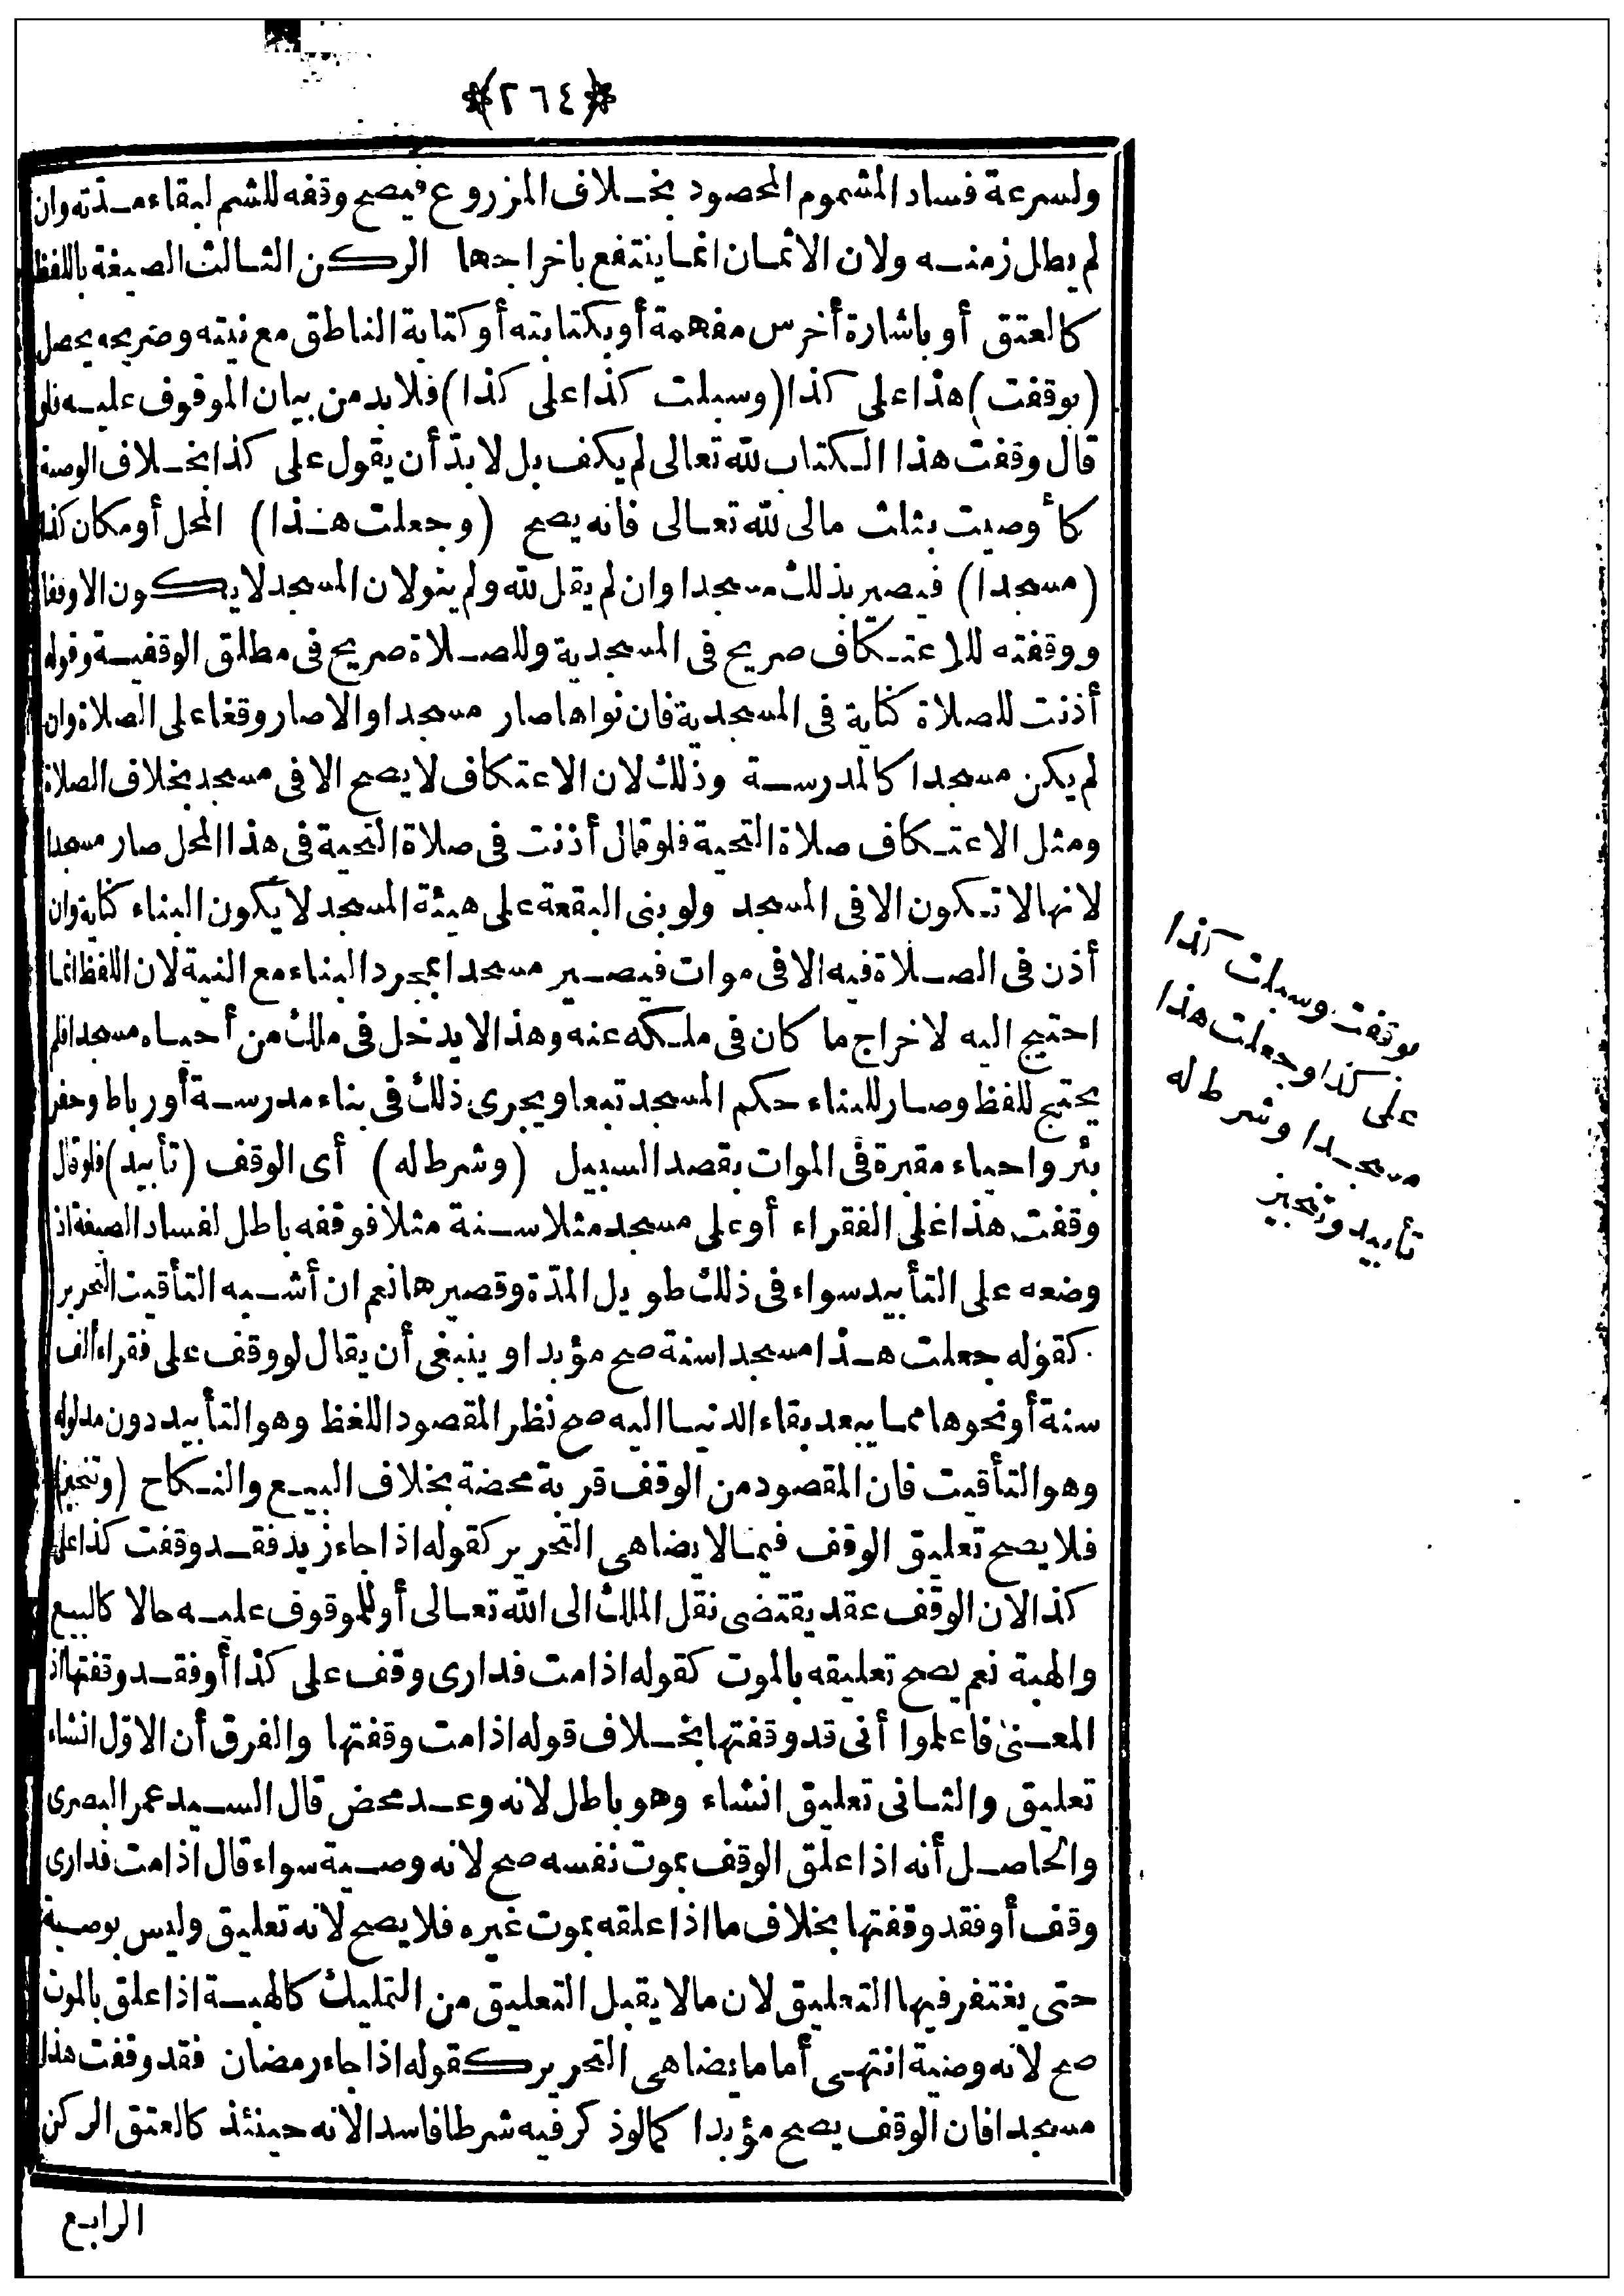 ﴿٢٦٤﴾
ولسرعة فساد المشموم المحصود بخلاف المزروع فيصح وقفه للشم لبقاء مدّته وان
لم يطل زمنه ولان الاثمان انما ينتفع باخراجها الركن الثالث الصيغة باللفظ
كالعتق أو باشارة أخرس مفهمة أو بكتابته أو كتابة الناطق مع نيته وصريحه يحصل
(بوقفت) هذا على كذا (وسبلت كذا على كذا) فلا بد من بيان الموقوف عليه فلو
قال وقفت هذا الكتاب لله تعالى لم يكف بل لا بدّ أن يقول على كذا بخلاف الوصية
كأوصيت بثلث مالى لله تعالى فانه يصح (وجعلت هذا) المحل أو مكان كذا
(مسجدا) فيصير بذلك مسجدا وان لم يقل لله ولم ينو لان المسجد لا يكون الا وقفا
ووقفته للاعتكاف صريح فى المسجدية وللصلاة صريح فى مطلق الوقفية وقوله
أذنت للصلاة كناية فى المسجدية فان نواها صار مسجدا والا صار وقفا على الصلاة وان
لم يكن مسجدا كالمدرسة وذلك لان الاعتكاف لا يصح الا فى مسجد بخلاف الصلاة
ومثل الاعتكاف صلاة التحية فلو قال أذنت فى صلاة التحية فى هذا المحل صار مسجدا
لانها لا تكون الا فى المسجد ولو بنى البقعة على هيئة المسجد لا يكون البناء كناية وان
أذن فى الصلاة فيه الا فى موات فيصير مسجدا بمجرد البناء مع النية لان اللفظ انما
احتيج اليه لاخراج ما كان فى ملكه عنه وهذا لا يدخل فى ملك من أحياه مسجدا فلم
يحتج للفظ وصار للبناء حكم المسجد تبعا ويجرى ذلك فى بناء مدرسة أو رباط وحفر
بئر واحياء مقبرة فى الموات بقصد السبيل (وشرط له) أى الوقف (تأبيد) فلو قال
وقفت هذا على الفقراء أو على مسجد مثلا سنة مثلا فوقفه باطل لفساد الصيغة اذ
وضعه على التأبيد سواء فى ذلك طويل المدّة وقصيرها نعم ان أشبه التأقيت التحرير
كقوله جعلت هذا مسجدا سنة صح مؤبدا وينبغى أن يقال لو وقف على فقراء ألف
سنة أو نحوها مما يبعد بقاء الدنيا اليه صح نظر المقصود اللفظ وهو التأبيد دون مدلوله
وهو التأقيت فان المقصود من الوقف قربة محضة بخلاف البيع والنكاح (وتنجيز)
فلا يصح تعليق الوقف فيما لا يضاهى التحرير كقوله اذا جاء زيد فقد وقفت كذا على
كذا لان الوقف عقد يقتضى نقل الملك الى الله تعالى أو للموقوف عليه حالا كالبيع
والهبة نعم يصح تعليقه بالموت كقوله اذا مت فدارى وقف على كذا أو فقد وقفتها اذ
المعنى فاعلموا أنى قد وقفتها بخلاف قوله اذا مت وقفتها والفرق أن الاوّل انشاء
تعليق والثانى تعليق انشاء وهو باطل لانه وعد محض قال السيد عمر البصرى
والحاصل أنه اذا علق الوقف بموت نفسه صح لانه وصية سواء قال اذا مت فدارى
وقف أو فقد وقفتها بخلاف ما اذا علقه بموت غيره فلا يصح لانه تعليق وليس بوصية
حتى يغتفر فيها التعليق لان ما لا يقبل التعليق من التمليك كالهبة اذا علق بالموت
صح لانه وصية انتهى أما ما يضاهى التحرير كقوله اذا جاء رمضان فقد وقفت هذا
مسجدا فان الوقف يصح مؤبدا كما لو ذكر فيه شرطا فاسدا لانه حينئذ كالعتق الركن
الرابع
بوقفت وسبلت كذا
على كذا وجعلت هذا
مسجدا وشرط له
تأبيد وتنجيز